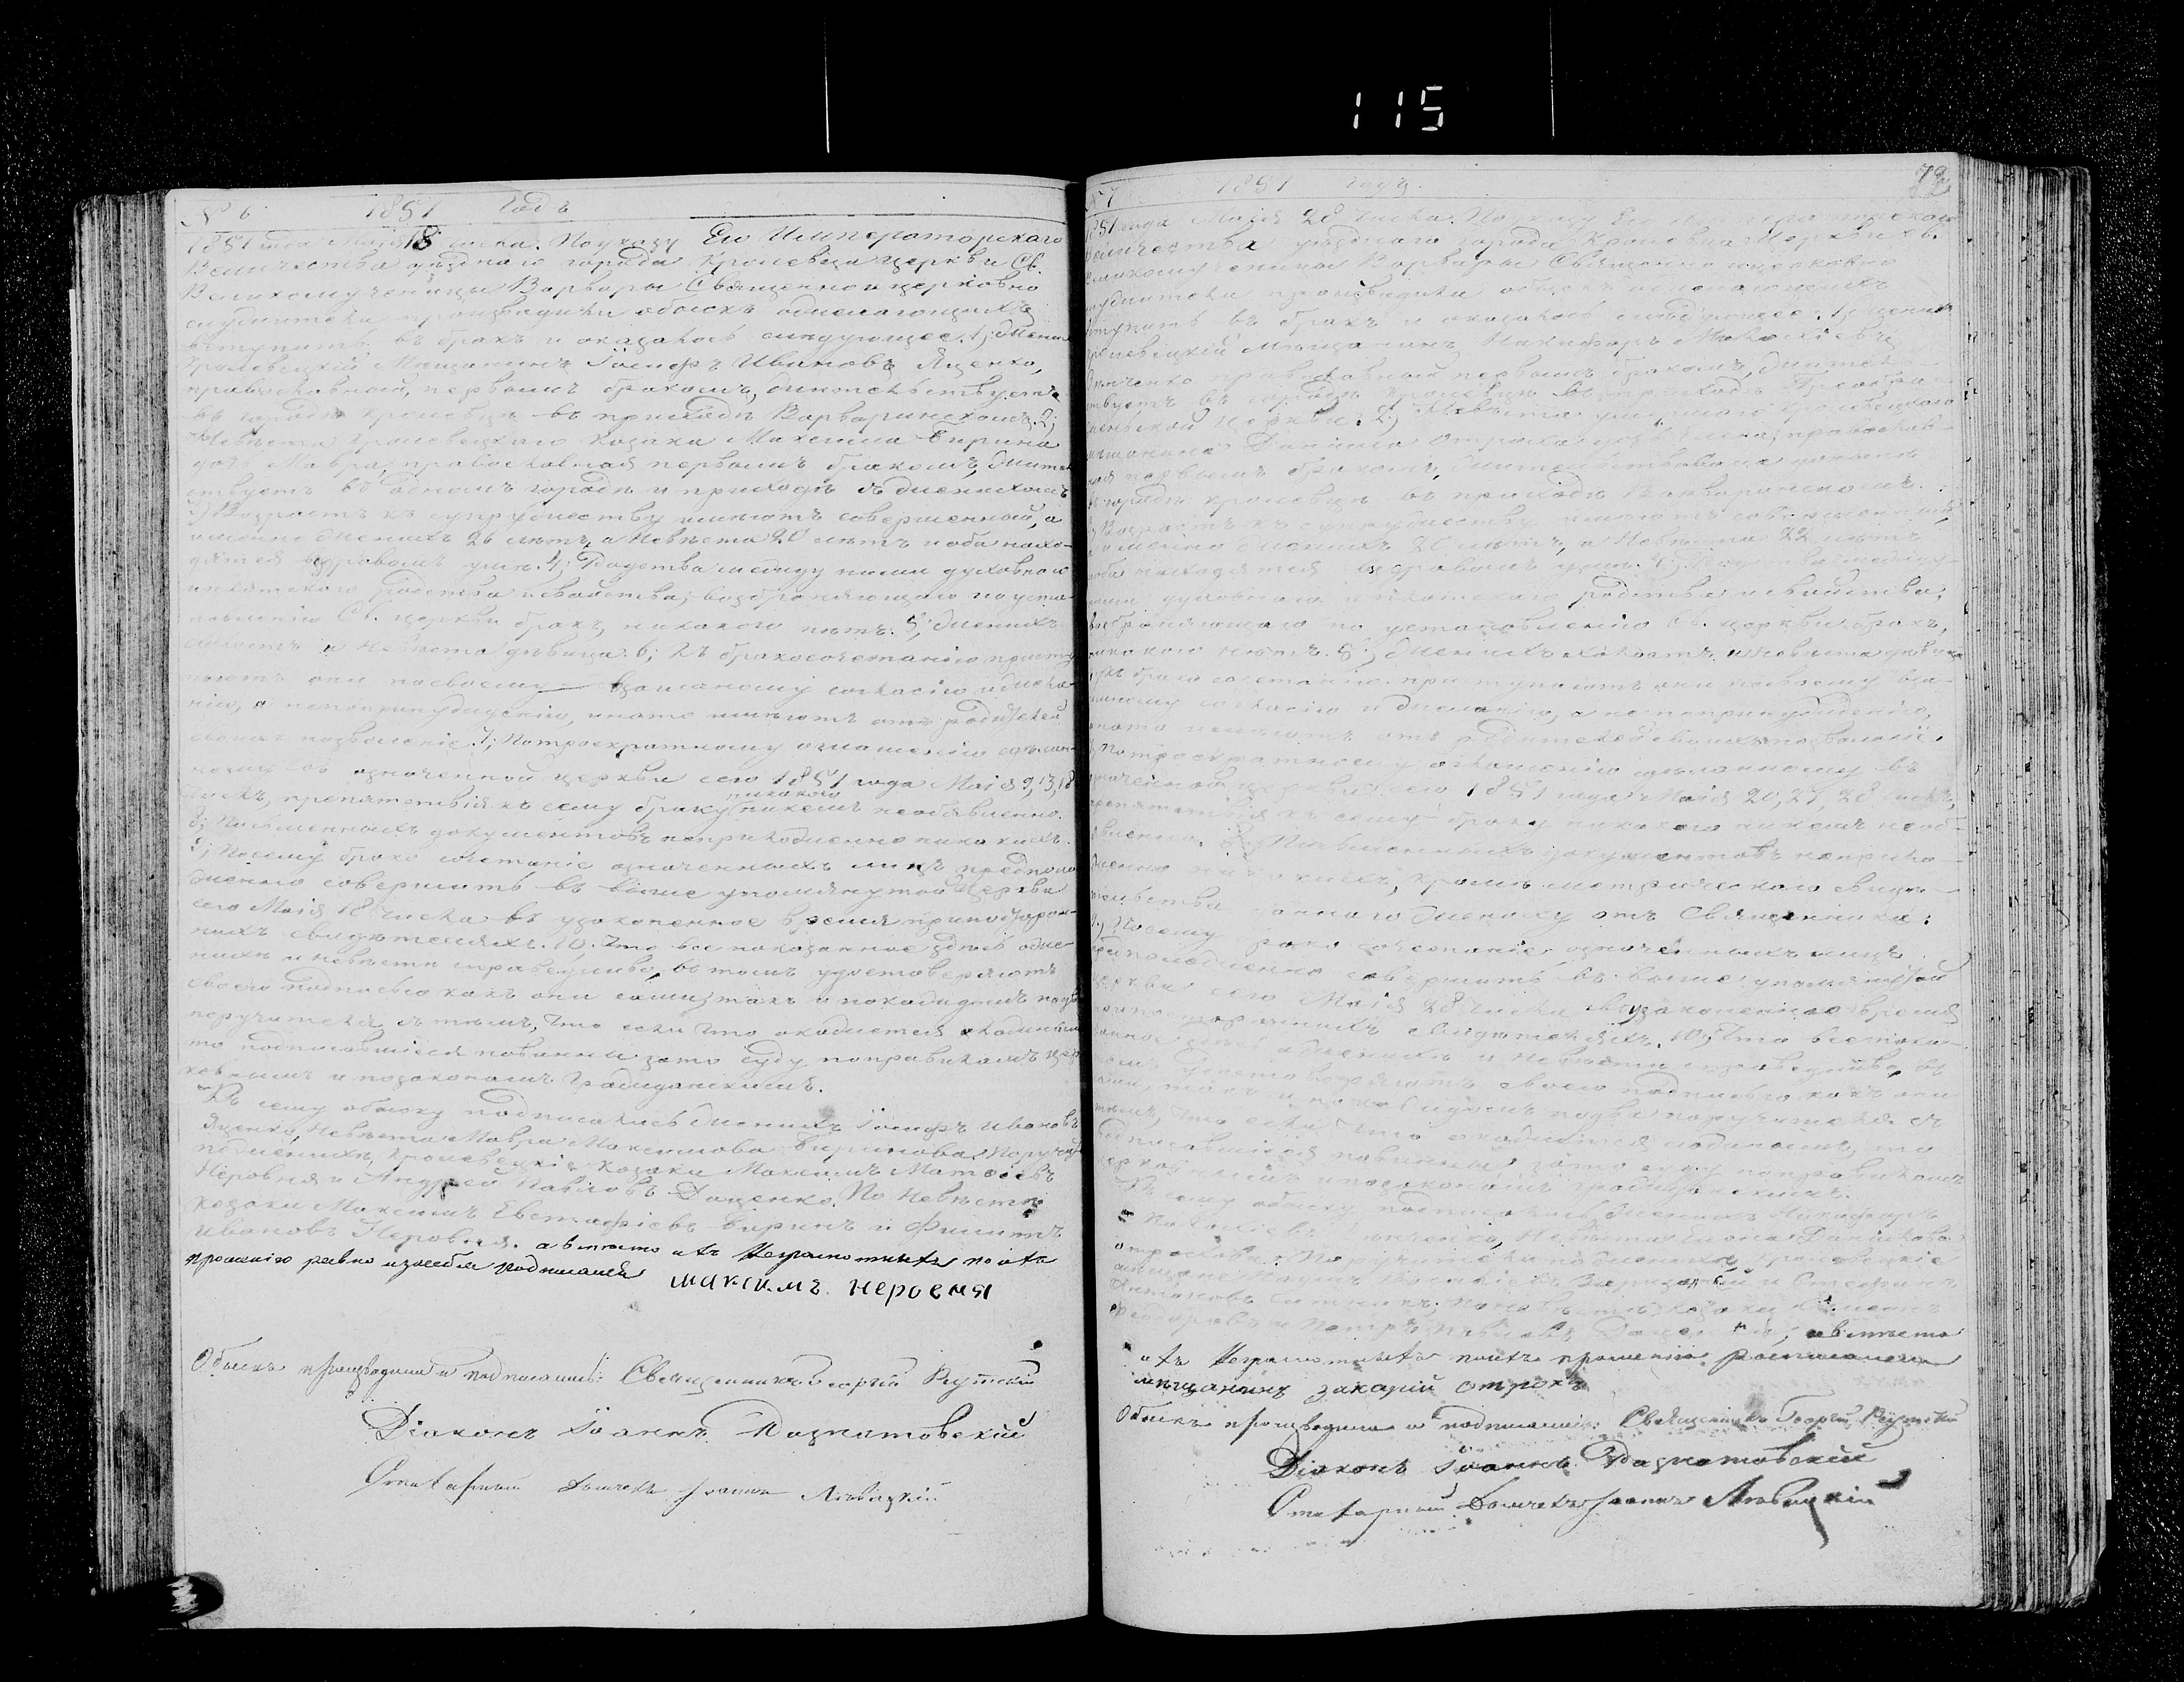 115
№ 6 1851 Годъ
1851 года Маія 18 числа. По указу Его Императорскаго
Величества уѣзднаго города Кролевца церкви Св.
Великомученицы Варвары Священно и церковно
служители производили обыскъ о желающихъ
вступить въ бракъ и оказалось слѣдующее. 1; Женихъ
Кролевецкій Мѣщанинъ Іосифъ Ивановъ Яценко,
православный, первымъ бракомъ, жительствуетъ
въ городѣ Кролевцѣ въ приходѣ Варваринскомъ. 2;
Невѣста Кролевецкаго козака Максима Бирина
дочь Мавра, православная первымъ бракомъ, житель
ствуетъ въ одномъ городѣ и приходѣ съ женихомъ
3) Возрастъ къ супружеству имѣютъ совершенный, а
именно женихъ 26 лѣтъ, а Невѣста 20 лѣтъ и оба нахо-
дятся въ здравомъ умѣ. 4; Родства между ними духовнаго
и плотскаго родства и свойства, возбраняющаго по уста-
новленію Св. церкви бракъ, никакого нѣтъ. 5; Женихъ
холостъ и Невѣста дѣвица. 6; Къ бракосочетанію присту
паютъ они по своему взаимному согласію и жела-
нію, а не по принужденію, и на то имѣютъ отъ родителей
своихъ позволеніе. 7; По троекратному оглашенію сдѣлан-
ному въ означенной церкви сего 1851 года Маія 9, 13, 18
числъ, препятствія къ сему браку никакого никемъ необъявленно.
8; Письменныхъ документовъ неприложенно никакихъ.
9; Посему бракосочетаніе означенныхъ лицъ предполо
женно совершить въ выше упомянутой церкви
сего Маія 18 числа въ узаконенное время при посторон-
нихъ свидѣтеляхъ. 10. Что все показанное здѣсь о же-
нихѣ и невѣстѣ справедливо, въ томъ удостовѣряютъ
своею подписью какъ они сами, такъ и по каждомъ по два
поручителя, съ тѣмъ, что если что окажется ложнымъ
то подписавшіеся повинны за то суду по правиламъ цер
ковнымъ и по законамъ гражданскимъ.
Къ сему обыску подписались Женихъ Іосифъ Ивановъ
Яценко, Невѣста Мавра Максимова Биринова. Поручит
по женихѣ, Кролевецкіе козаки Максимъ Матвѣевъ
Неровня и Андрей Павловъ Даценко. По Невѣстѣ
козаки Максимъ Евстафіевъ Биринъ и Филиппъ
Ивановъ Неровня. а вмѣсто ихъ Неграмотныхъ по ихъ
прошенію равно и за себя подписался максимъ неровня
Обыскъ производили и подписались: Священникъ Георгій Рутскій
Діаконъ Іоаннъ Поznатовскій
Дьячекъ Іоаннъ Львицкій
№ 7 1851 года.
1851 года Маія 28 числа. По указу Его Императорскаго
Величества уѣзднаго города Кролевца Церкви Св.
Великомученицы Варвары Священно и церковно
служители производили обыскъ о желающихъ
вступить въ бракъ и оказалось слѣдующее. 1; Женихъ
Кролевецкій Мѣщанинъ Никифоръ
православный первымъ бракомъ, жительс
твуетъ въ городѣ Кролевцѣ въ приходѣ Преобра
женской Церкви. 2; Невѣста умершаго Кролевецкого
мѣщанина Даніила Отроха дочь Елена, православ-
ная первымъ бракомъ, жительствовала доселѣ
въ городѣ Кролевцѣ въ приходѣ Варваринскомъ.
3; Возрастъ къ супружеству имѣютъ совершенный,
а именно женихъ 20 лѣтъ, а Невѣста 22 лѣтъ
и оба находятся въ здравомъ умѣ. 4; Родства между
ними духовнаго и плотскаго родства и свойства,
возбраняющаго по установленію Св. церкви бракъ,
никакого нѣтъ. 5; Женихъ холостъ, и Невѣста дѣвица
къ бракосочетанію приступаютъ они по своему вза-
имному согласію и желанію, а не по принужденію,
и на то имѣютъ отъ родителей своихъ позволеніе.
7; По троекратному оглашенію сдѣланному въ
означенной церкви сего 1851 года Маія 20, 27, 28 числъ,
препятствія къ сему браку никакого никемъ необ-
явленно. 8; Письменныхъ документовъ неприло-
женно никакихъ, кромѣ метрическаго свидѣ-
тельства даннаго Жениху отъ Священника:
9; Посему бракосочетаніе означенныхъ лицъ
предположенно совершить въ выше упомянутой
церкви сего Маія 28 числа въ узаконенное время
при постороннихъ свидѣтеляхъ. 10; Что все показан-
ное здѣсь о женихѣ и Невѣстѣ справедливо, въ
томъ удостовѣряютъ своею подписью какъ они
сами, такъ и по каждомъ по два поручителя съ
тѣмъ, что если что окажется ложнымъ, то
подписавшіеся повинны за то суду по правиламъ
церковнымъ и по законамъ гражданскимъ.
Къ сему обыску подписались Женихъ Никифоръ
Невѣста Елена Даніилова
Отрохова. Поручители по женихѣ, Кролевецкіе
мѣщане и Стефанъ
Антоновъ по невѣстѣ козаки
Федоровъ и Петръ Павловъ вмѣсто
ихъ Неграмотныхъ по ихъ прошенію росписался
мѣщанинъ захарій отрохъ
Обыскъ производили и подписались: Священникъ Георгій Рутскій
Діаконъ Іоаннъ
Дьячекъ Іоаннъ Львицкій